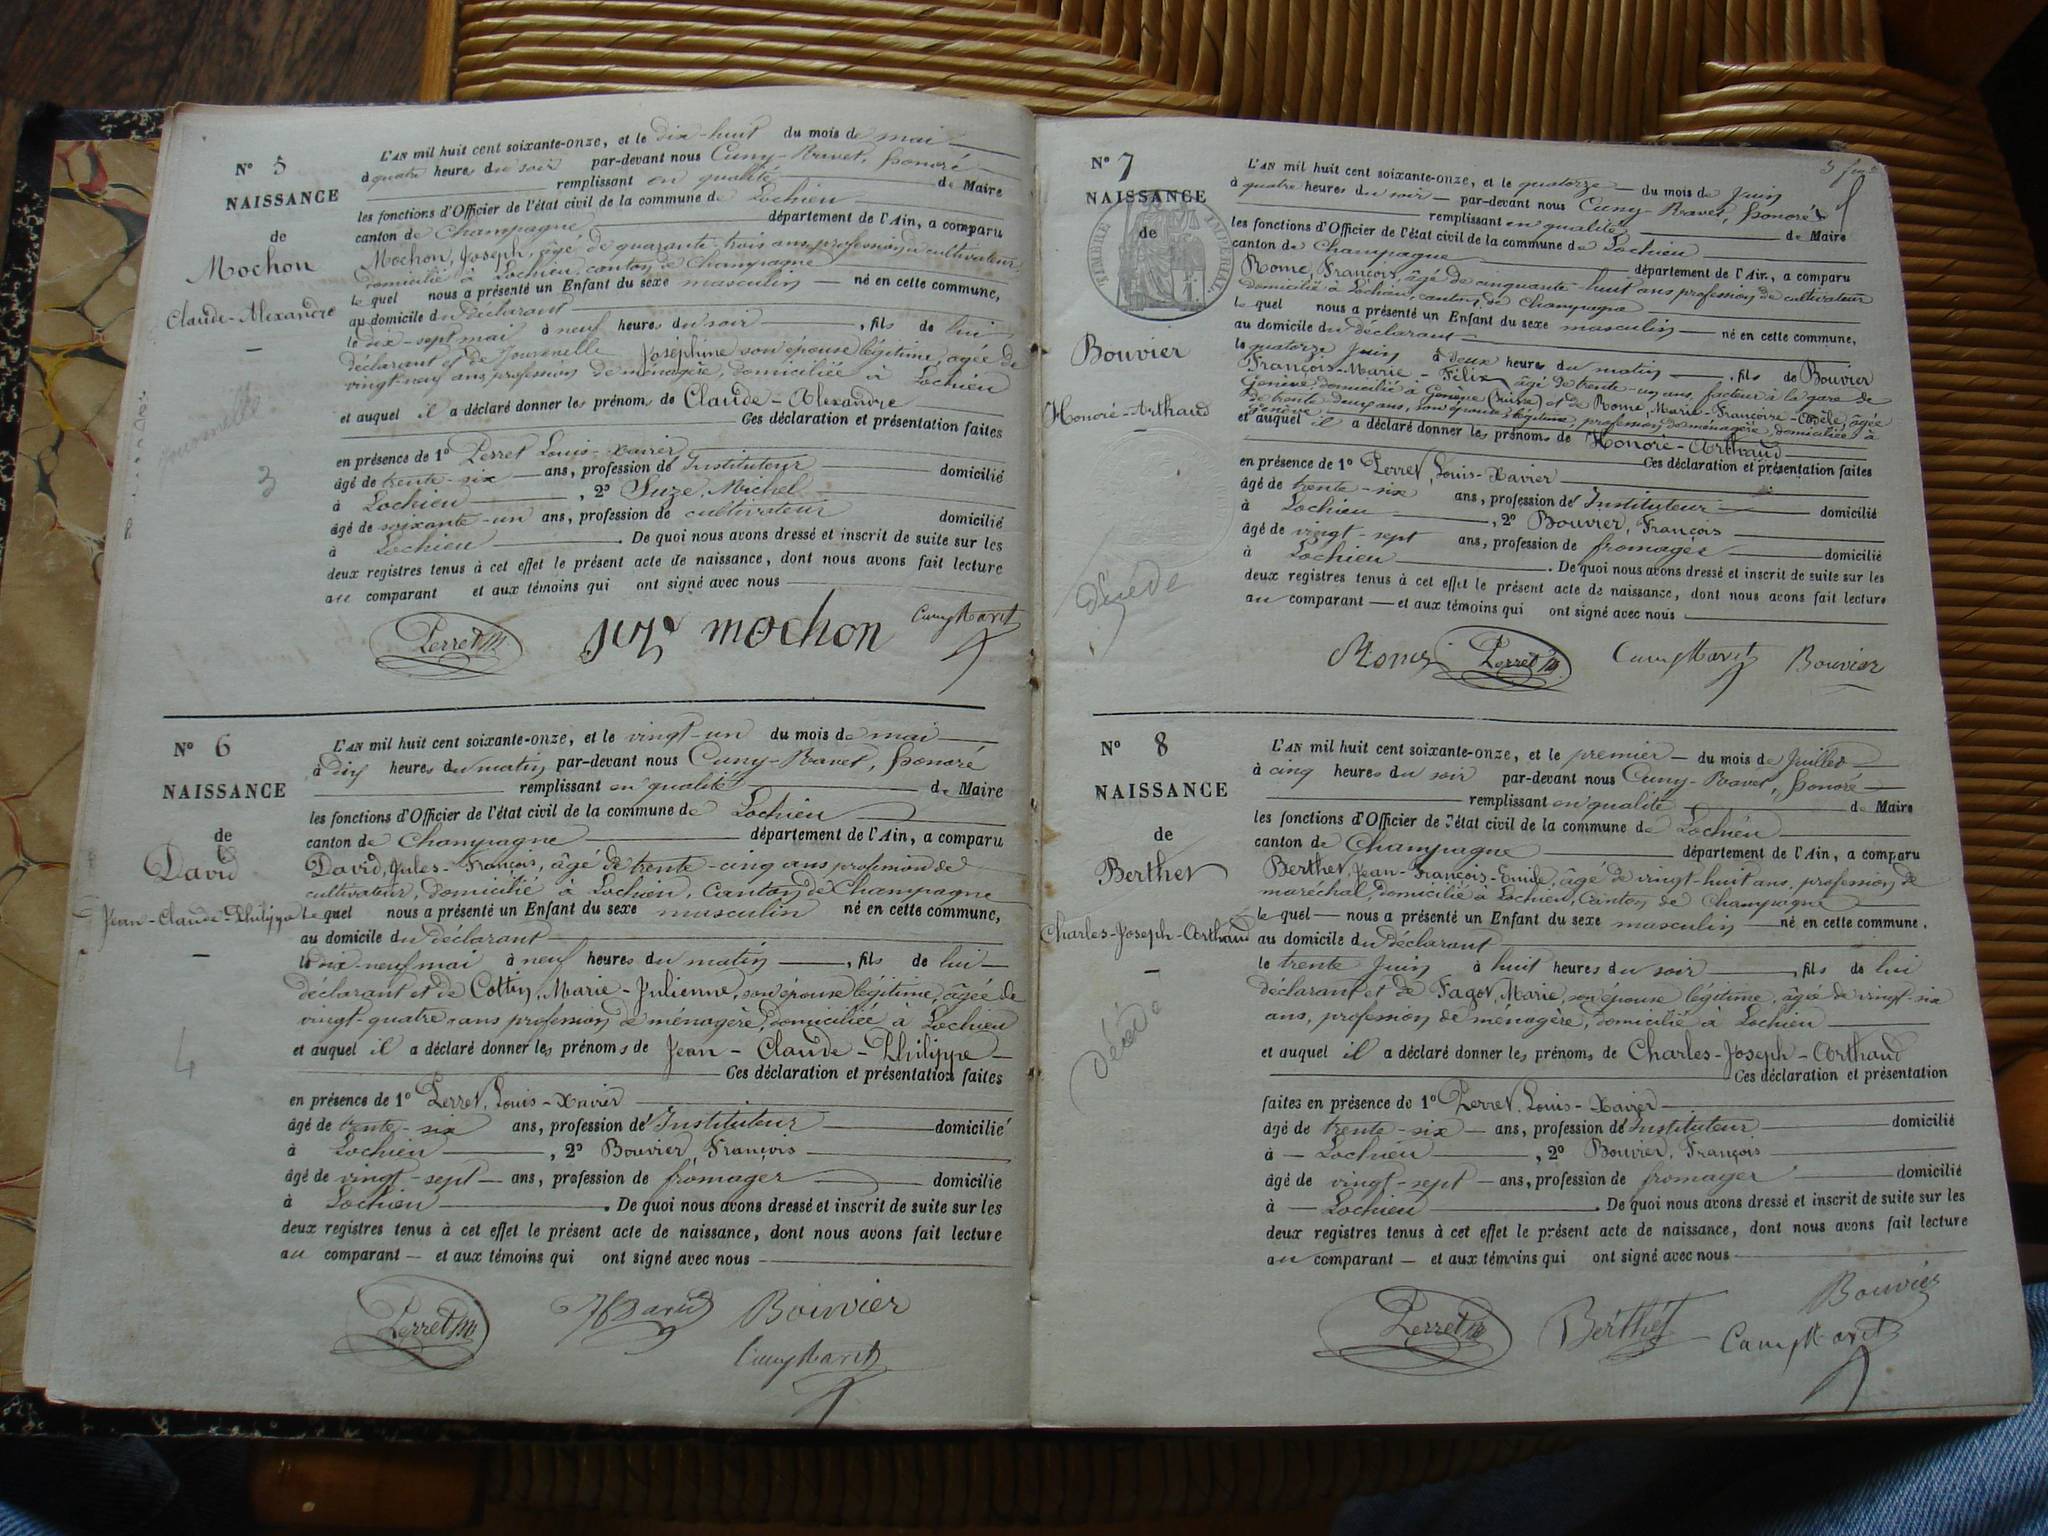 N° 5
NAISSANCE
de
Mochon
Claude-Alexandre
L'AN mil huit cent soixante-onze, et le dix-huit du mois de mai
à quatre heures du soir par-devant nous Cuny-Ravet, Honoré
remplissant en qualité de Maire
les fonctions d'Officier de l'état civil de la commune de Lochieu
canton de Champagne département de l'Ain, a comparu
Mochon, Joseph, âgé de quarante-trois ans, profession de cultivateur,
domicilié à Lochieu, canton de Champagne
lequel nous a présenté un Enfant du sexe masculin né en cette commune,
au domicile du déclarant
le dix-sept mai à neuf heures du soir, fils de lui
déclarant et de Joséphine son épouse légitime, agée de
vingt-neuf ans, profession de ménagère, domiciliée à Lochieu
et auquel il a déclaré donner les prénoms de Claude-Alexandre
Ces déclaration et présentation faites
en présence de 1° Perret Louis-Xavier
âgé de trente-six ans, profession de Instituteur domicilié
à Lochieu, 2° Suze, Michel
âgé de soixante-un ans, profession de cultivateur domicilié
à Lochieu. De quoi nous avons dressé et inscrit de suite sur les
deux registres tenus à cet effet le présent acte de naissance, dont nous avons fait lecture
au comparant et aux témoins qui ont signé avec nous
3
Perret mochon Cuny Ravet
N° 6
NAISSANCE
de
David
Jean-Claude-Philippe
L'AN mil huit cent soixante-onze, et le vingt-un du mois de mai
à dix heures du matin par-devant nous Cuny-Ravet, Honoré
remplissant en qualité de Maire
les fonctions d'Officier de l'état civil de la commune de Lochieu
canton de Champagne département de l'Ain, a comparu
David, Jules-François, âgé de trente-cinq ans profession de
cultivateur, domicilié à Lochieu, Canton de Champagne
lequel nous a présenté un Enfant du sexe masculin né en cette commune,
au domicile du déclarant
le dix-neuf mai à neuf heures du matin, fils de lui
déclarant et de Cottin, Marie-Julienne, son épouse légitime, âgée de
vingt-quatre ans profession de ménagère, domiciliée à Lochieu
et auquel il a déclaré donner les prénoms de Jean-Claude-Philippe
Ces déclaration et présentation faites
en présence de 1° Perret, Louis-Xavier
âgé de trente-six ans, profession d'Instituteur domicilié
à Lochieu, 2° Bouvier, François
âgé de vingt-sept ans, profession de fromager domicilié
à Lochieu. De quoi nous avons dressé et inscrit de suite sur les
deux registres tenus à cet effet le présent acte de naissance, dont nous avons fait lecture
au comparant et aux témoins qui ont signé avec nous
4
Perret David Bouvier
Cuny Ravet
N° 7
NAISSANCE
de
TIMBRE IMPERIAL
Bouvier
Honoré-Arthaud
décédé
L'AN mil huit cent soixante-onze, et le quatorze du mois de Juin
à quatre heures du soir par-devant nous Cuny-Ravet, Honoré
remplissant en qualité de Maire
les fonctions d'Officier de l'état civil de la commune de Lochieu
canton de Champagne département de l'Ain, a comparu
Rome, François, âgé de cinquante-huit ans profession de cultivateur
domicilié à Lochieu, canton de Champagne
lequel nous a présenté un Enfant du sexe masculin né en cette commune,
au domicile du déclarant
le quatorze Juin à deux heures du matin, fils de Bouvier
François-Marie-Félix, âgé de trente-un ans, facteur à la gare de
Genève, domicilié à Genève (Suisse) et de Rome, Marie-Françoise-Adèle, âgée
de trente deux ans, son épouse légitime, profession de ménagère, domiciliée à
Genève
et auquel il a déclaré donner les prénoms de Honoré-Arthaud
Ces déclaration et présentation faites
en présence de 1° Perret, Louis-Xavier
âgé de trente-six ans, profession d'Instituteur domicilié
à Lochieu, 2° Bouvier, François
âgé de vingt-sept ans, profession de fromager domicilié
à Lochieu. De quoi nous avons dressé et inscrit de suite sur les
deux registres tenus à cet effet le présent acte de naissance, dont nous avons fait lecture
au comparant et aux témoins qui ont signé avec nous
Rome Perret Cuny Ravet Bouvier
N° 8
NAISSANCE
de
Berthet
Charles-Joseph-Arthaud
décédé
L'AN mil huit cent soixante-onze, et le premier du mois de Juillet
à cinq heures du soir par-devant nous Cuny-Ravet, Honoré
remplissant en qualité de Maire
les fonctions d'Officier de l'état civil de la commune de Lochieu
canton de Champagne département de l'Ain, a comparu
Berthet, Jean-François-Emile, âgé de vingt-huit ans, profession de
maréchal, domicilié à Lochieu, Canton de Champagne
lequel nous a présenté un Enfant du sexe masculin né en cette commune,
au domicile du déclarant
le trente Juin à huit heures du soir, fils de lui
déclarant et de Fagot, Marie, son épouse légitime, âgée de vingt-six
ans, profession de ménagère, domicilié à Lochieu
et auquel il a déclaré donner les prénoms de Charles-Joseph-Arthaud
Ces déclaration et présentation
faites en présence de 1° Perret, Louis-Xavier
âgé de trente-six ans, profession d'Instituteur domicilié
à Lochieu, 2° Bouvier, François
âgé de vingt-sept ans, profession de fromager domicilié
à Lochieu. De quoi nous avons dressé et inscrit de suite sur les
deux registres tenus à cet effet le présent acte de naissance, dont nous avons fait lecture
au comparant et aux témoins qui ont signé avec nous
Perret Berthet Bouvier
Cuny Ravet